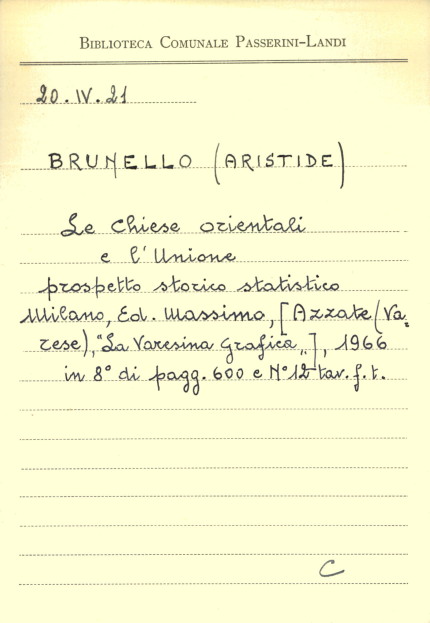 BIBLIOTECA COMUNALE PASSERINI-LANDI
20.IV.21
BRUNELLO (ARISTIDE)
Le Chiese orientali
e l'Unione
prospetto storico statistico
Milano, Ed. Massimo, [Azzate (Va=
rese), "La Varesina Grafica„], 1966
in 8° di pagg. 600 e N°12 tav. f. t.
C